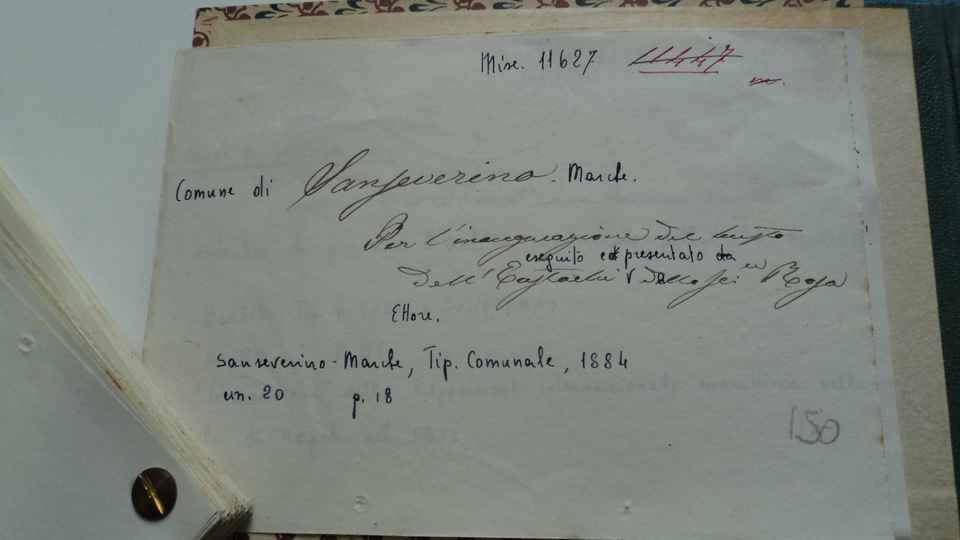 Misc. 11627 11447
Comune di Sanseverino. Marche.
Per l'inaugurazione del busto
eseguito e presentato da
dell' Eustachi Rosa
Ettore.
Sanseverino-Marche, Tip. Comunale, 1884
cm. 20 p. 18
150